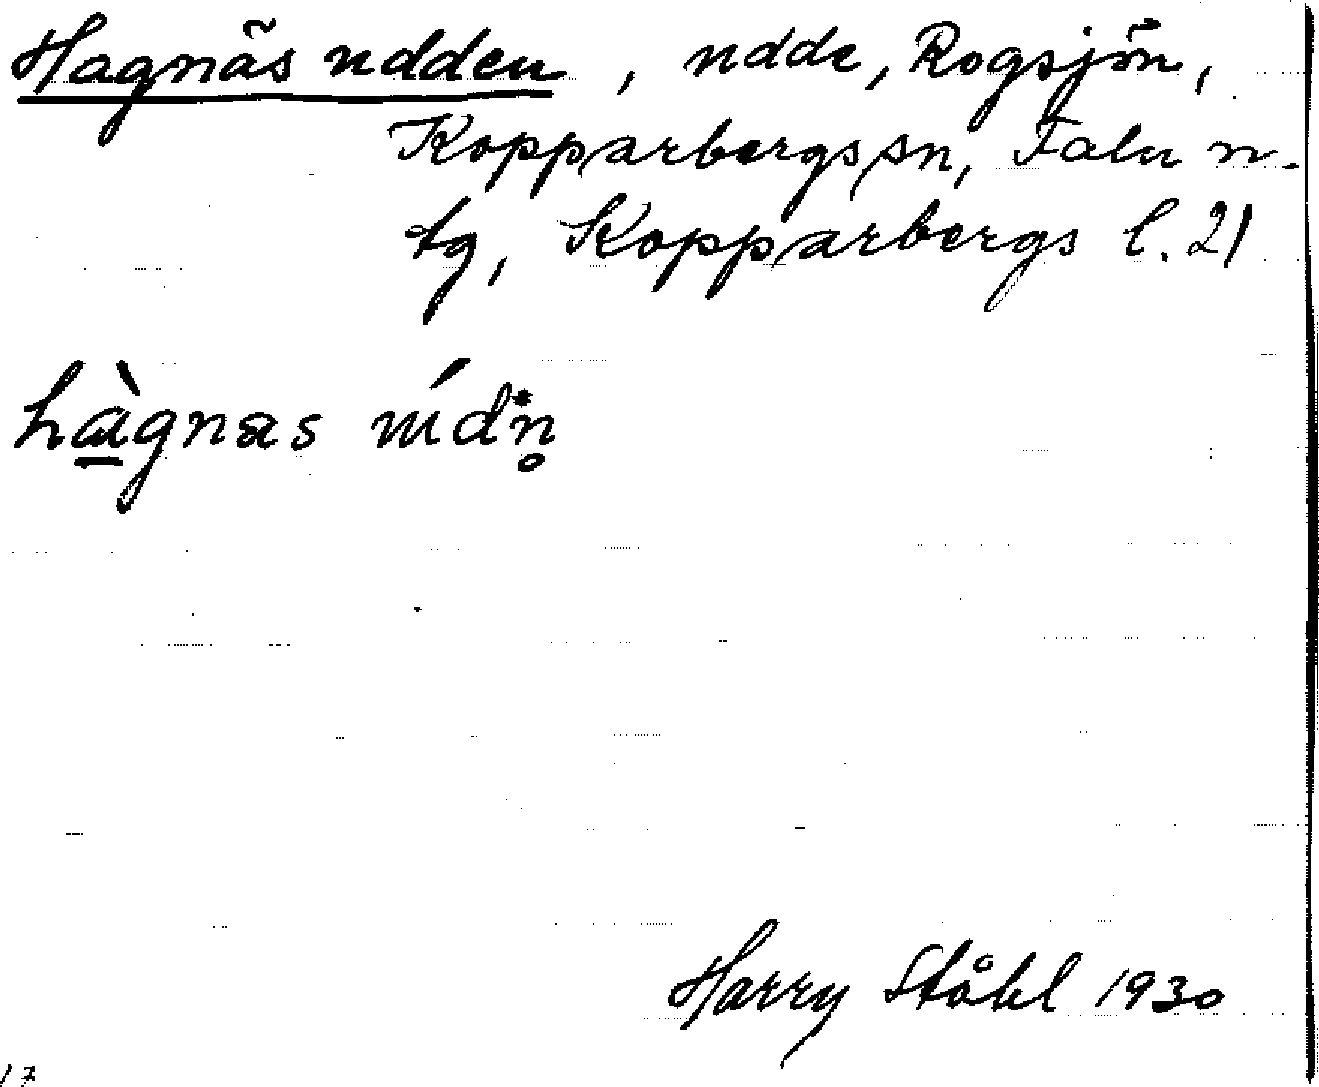 Hagnäs udden, udde, Rogsjön,
Kopparbergs sn, Falu n.
tg, Kopparbergs l. 21
Harry Ståhl 1930
17